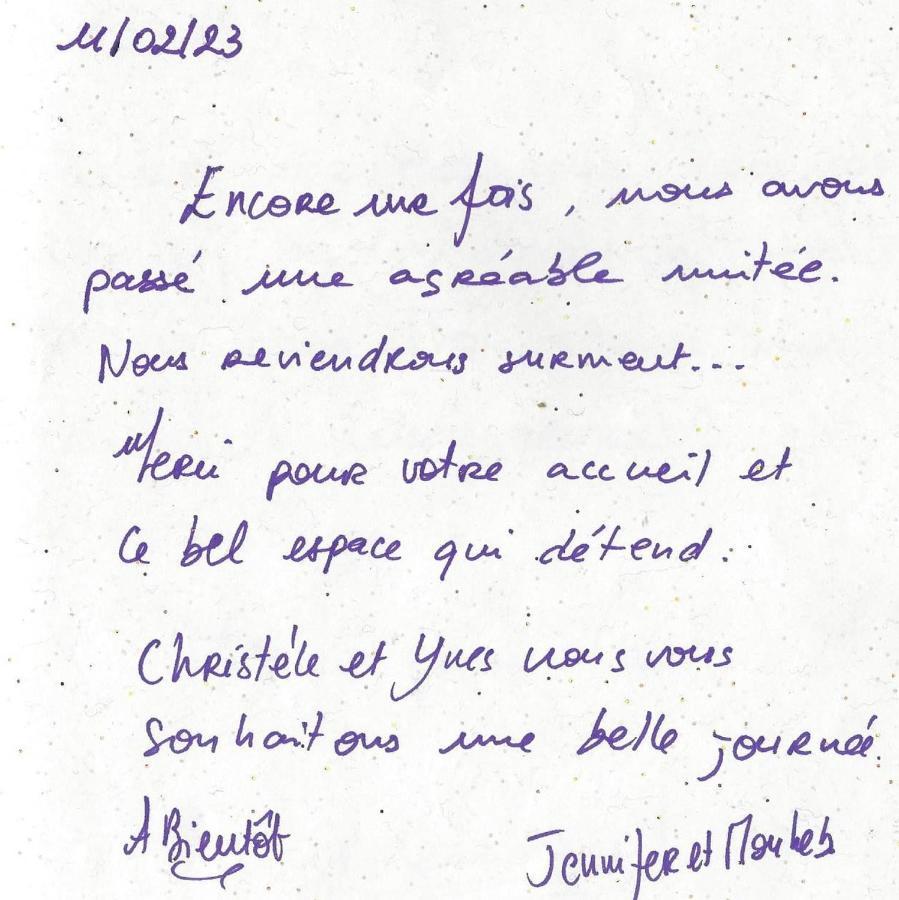 11/02/23
Encore une fois, nous avons
passé une agréable nuitée.
Nous reviendrons surment...
Merci pour votre accueil et
ce bel espace qui détend.
Christéle et Yves nous vous
souhaitons une belle journée.
A Bientôt
Jennifer et